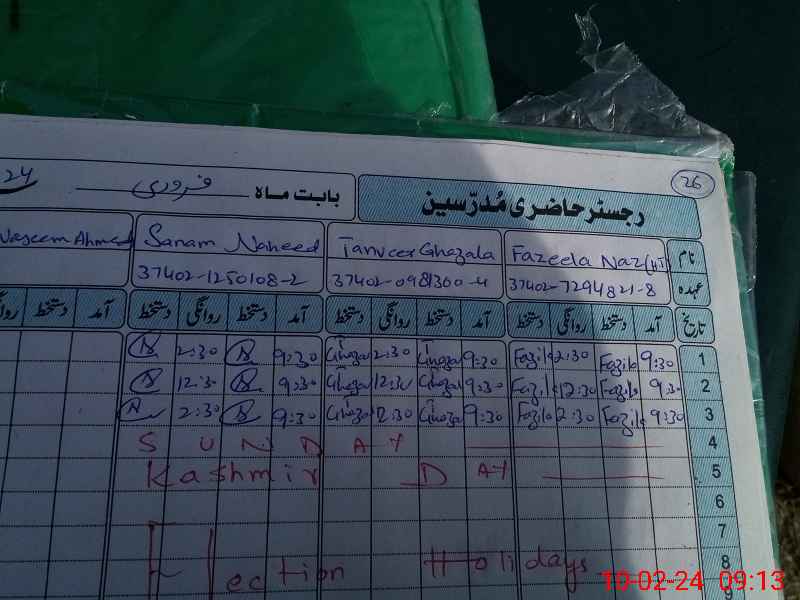 26
رجسٹر حاضری مُدرّسین بابت ماہ فروری 24
نام Fazeela Naz (H.T) Tanveer Ghazala Sanam Naheed Waseem Ahmed
عہدہ 37402-7294821-8 37402-0981300-4 37402-1250108-2
تاریخ آمد دستخط روانگی دستخط آمد دستخط روانگی دستخط آمد دستخط روانگی دستخط آمد دستخط
1 9:30 Fazila 2:30 Fazila 9:30 Ghazal 2:30 Ghazal 9:30 2:30
2 9:30 Fazila 12:30 Fazila 9:30 Ghazal 12:30 Ghazal 9:30 12:30
3 9:30 Fazila 2:30 Fazila 9:30 Ghazal 2:30 Ghazal 9:30 2:30
4 SUNDAY
5 Kashmir DAY
6
7
8 Election Holidays
9
10-02-24 09:13